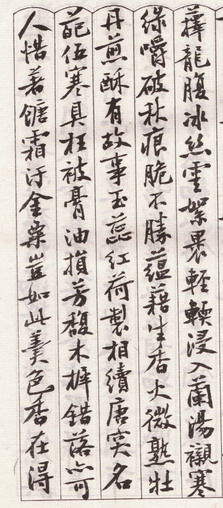 籜龍腹冰絲雪絮裹輕輭浸入蘭湯襯寒
綠嚼破秋痕脆不勝蘊藉生香火微熟牡
丹煎酥有故事玉蕊紅荷製相續唐突名
葩伍寒具枉被膏油損芳馥木樨錯落亦可
人惜著餹霜汙金粟豈如此羹色香在得